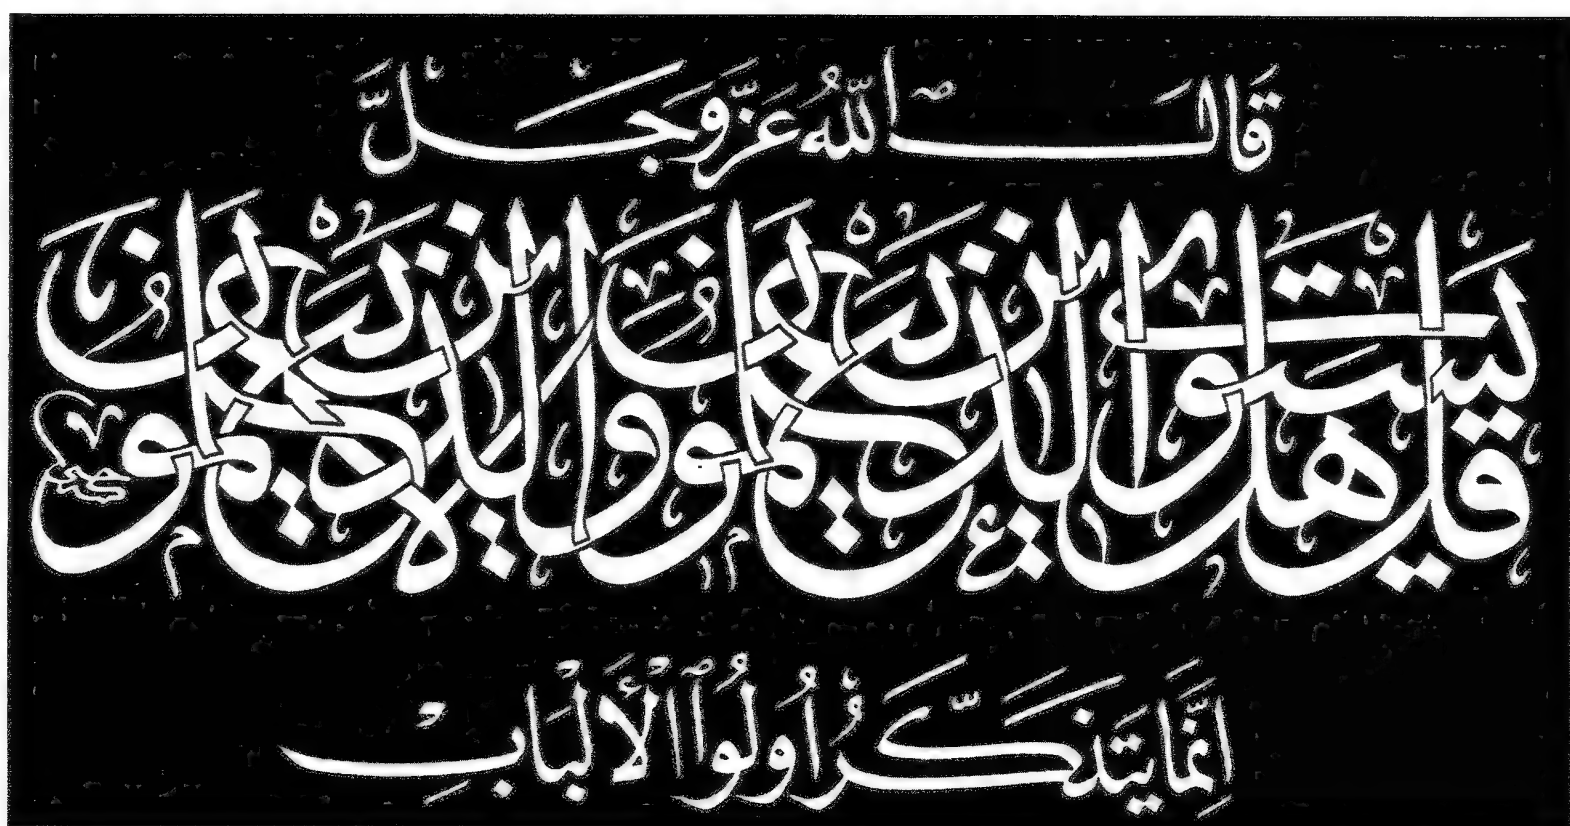 قَالَ اللّٰهُ عَزَّ وَجَلَّ
قُلْ هَلْ يَسْتَوِي الَّذِينَ يَعْلَمُونَ وَالَّذِينَ لَا يَعْلَمُونَ
اِنَّمَا يَتَذَكَّرُ اُولُوا الْأَلْبَابِ